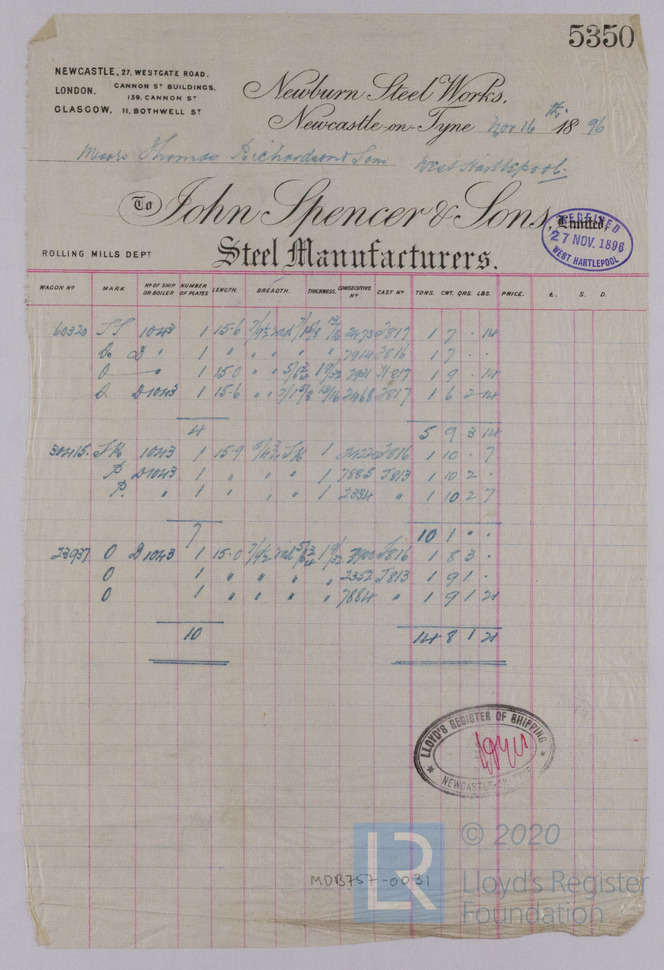 5350
NEWCASTLE, 27, WESTGATE ROAD,
LONDON, CANNON ST BUILDINGS, 139, CANNON ST
GLASGOW, 11, BOTHWELL ST
Newburn Steel Works,
Newcastle-on-Tyne Nov 16th 1896
Messrs Thomas Richardson & Sons West Hartlepool.
To John Spencer & Sons, Limited,
RECEIVED 27 NOV. 1896 WEST HARTLEPOOL
ROLLING MILLS DEPT Steel Manufacturers.
WAGON No MARK No OF SHIP OR BOILER NUMBER OF PLATES LENGTH. BREADTH. THICKNESS. CONSECUTIVE No CAST No TONS. CWT. QRS. LBS. PRICE. £. S. D.
60320 1043 1 15.6 2473 J817 1 7 . 14
D " 1 " " " " 7914 J816 1 7 . .
1 15.0 " " 7931 817 1 9 . 14
D 1043 1 15.6 " " 2468 J817 1 6 2 14
4 5 9 3 14
30415. 1043 1 15.9 1 2422 J816 1 10 . 7
P D 1043 1 " " " 1 7885 J813 1 10 2 .
P. " 1 " " " 1 2334 " 1 10 2 7
7 10 1 . .
23937 O D 1043 1 15.0 J816 1 8 3 .
O 1 " " " " 2352 J813 1 9 1 .
O 1 " " " " 7884 " 1 9 1 21
10 14 8 1 21
LLOYD'S REGISTER OF SHIPPING
NEWCASTLE-ON-TYNE
MDB757-0031
LR © 2020
Lloyd's Register
Foundation